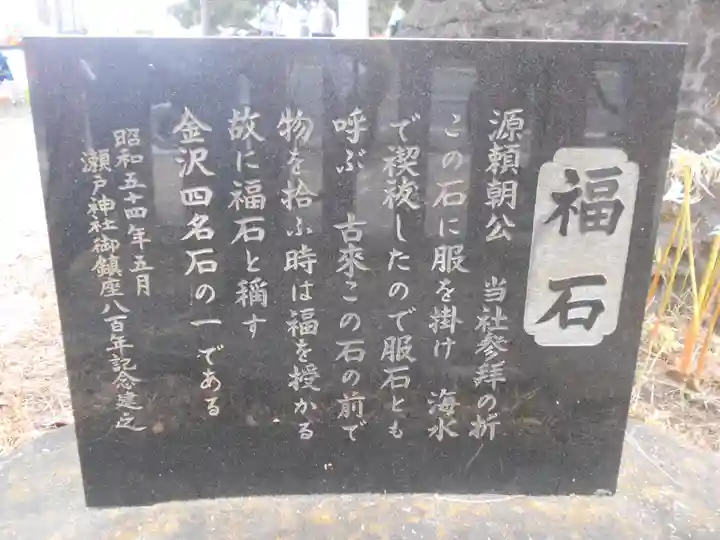 福石
源頼朝公　当社参拜の折
この石に服を掛け　海水
で禊祓したので服石とも
呼ぶ　古来この石の前で
物を拾ふ時は福を授かる
故に福石と稱す
金沢四名石の一である
昭和五十四年五月
瀬戸神社御鎮座八百年記念建之